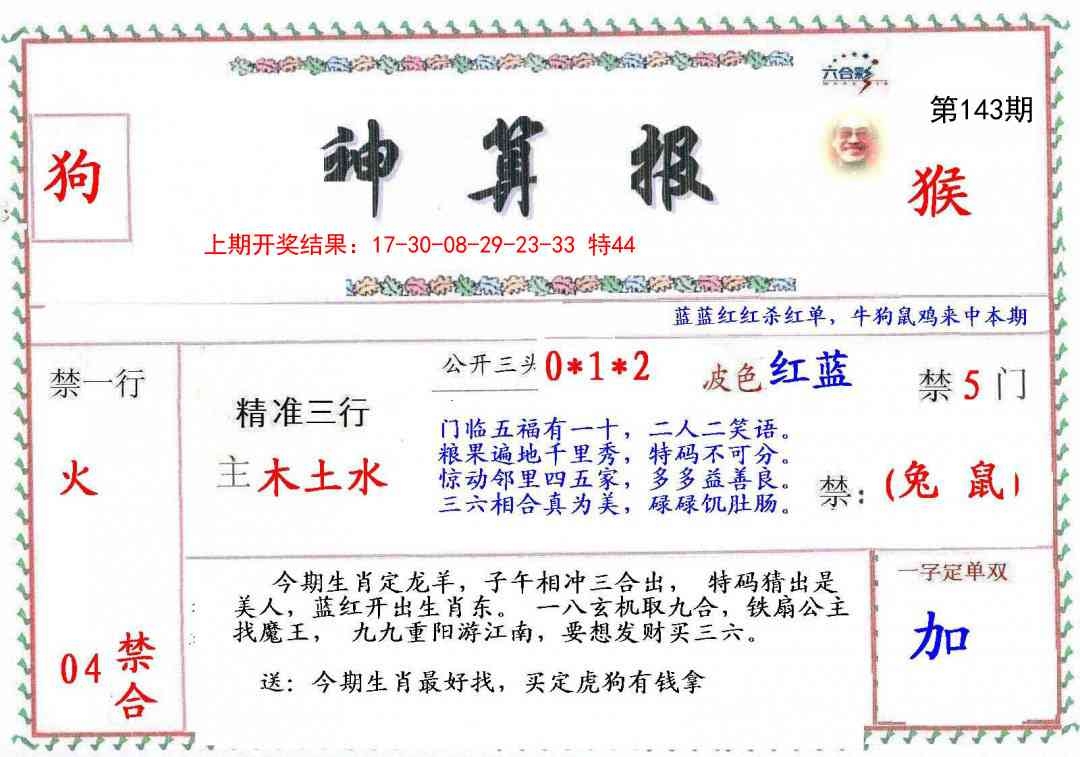 六合彩
第143期
狗
神算报
猴
上期开奖结果：17-30-08-29-23-33 特44
蓝蓝红红杀红单，牛狗鼠鸡来中本期
禁一行
火
04 禁合
精准三行
主 木土水
公开三头 0*1*2
波色 红蓝
门临五福有一十，二人二笑语。
粮果遍地千里秀，特码不可分。
惊动邻里四五家，多多益善良。
三六相合真为美，碌碌饥肚肠。
禁 5 门
禁：(兔 鼠)
今期生肖定龙羊，子午相冲三合出， 特码猜出是
美人，蓝红开出生肖东。 一八玄机取九合，铁扇公主
找魔王， 九九重阳游江南，要想发财买三六。
送：今期生肖最好找，买定虎狗有钱拿
一字定单双
加